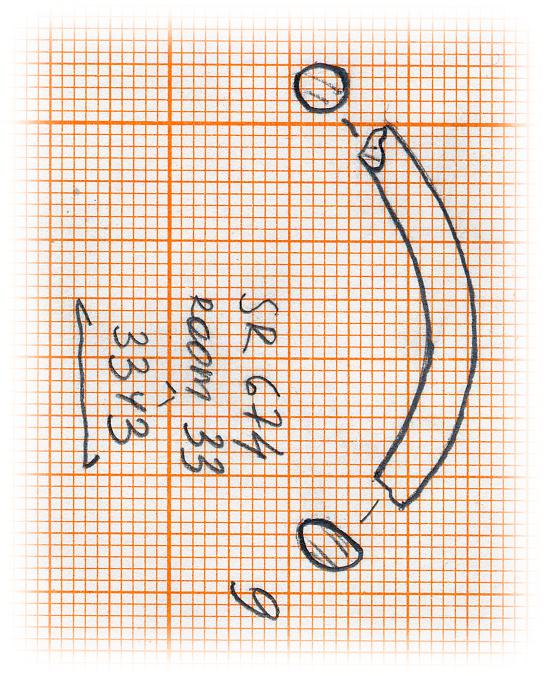 SR 674
ROOM 33
3343
9